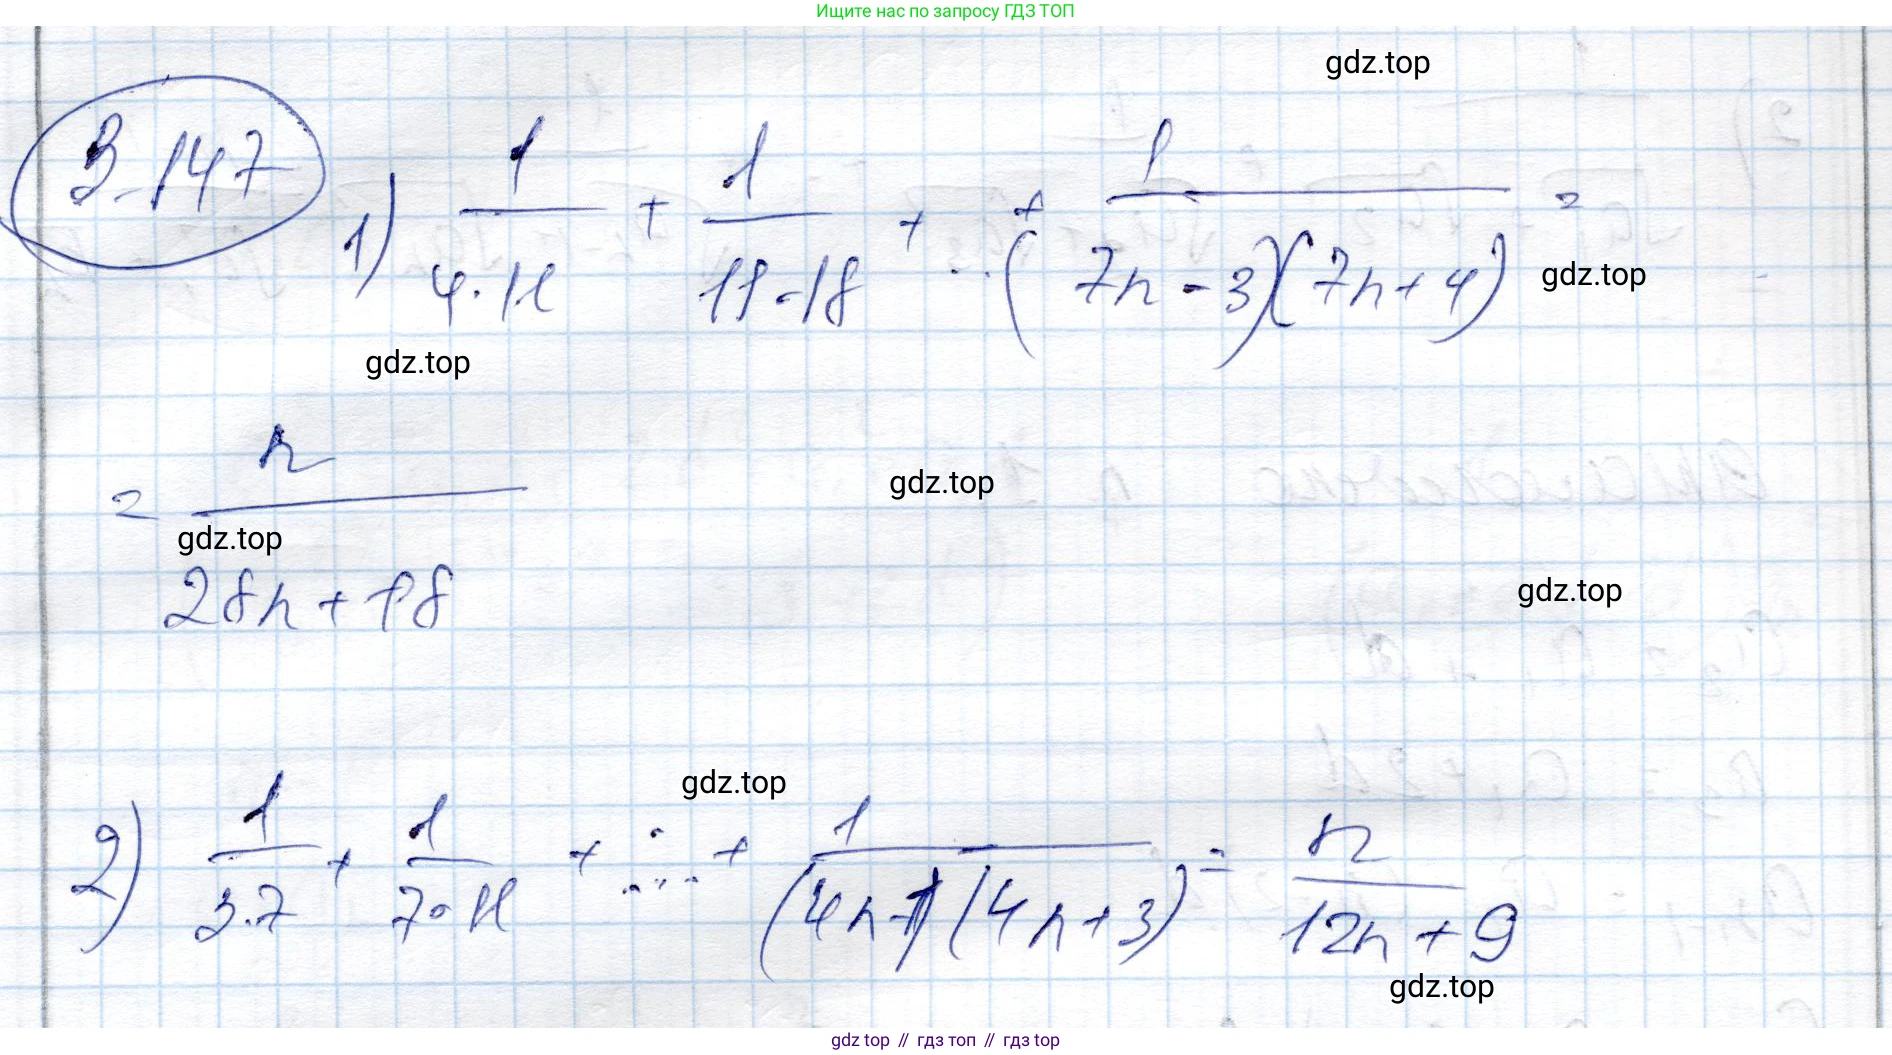 Ищите нас по запросу ГДЗ ТОП
gdz.top
3.147
1) 1/(4·11) + 1/(11·18) + ... + 1/((7n-3)(7n+4)) =
gdz.top
gdz.top
= n/(28n+18)
gdz.top
gdz.top
gdz.top
gdz.top
2) 1/(3·7) + 1/(7·11) + ... + 1/((4n-1)(4n+3)) = n/(12n+9)
gdz.top
gdz top // гдз топ // гдз top